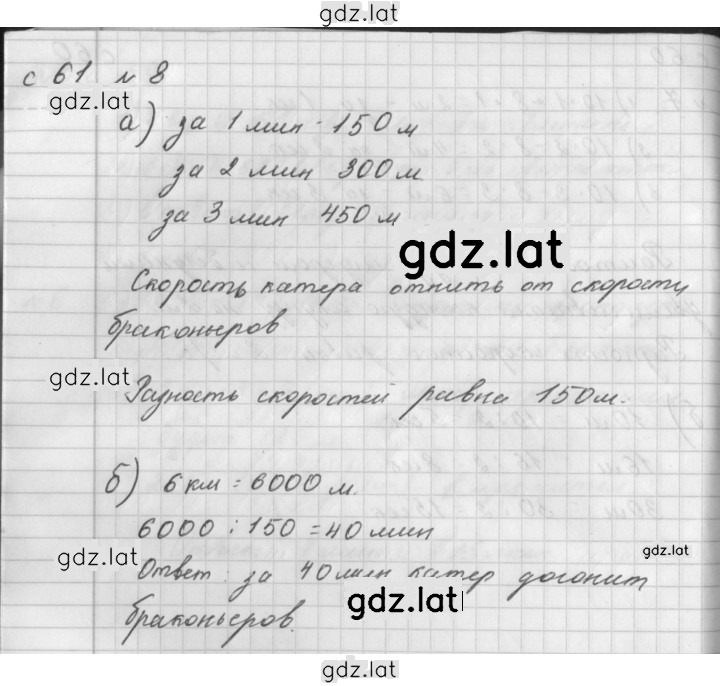 gdz.lat
с 61 № 8
gdz.lat
а) за 1 мин - 150 м
за 2 мин 300 м
за 3 мин 450 м
gdz.lat
Скорость катера отнить от скорости
браконьеров
gdz.lat
Разность скоростей равна 150 м.
б) 6 км = 6000 м.
6000 : 150 = 40 мин
gdz.lat
gdz.lat
Ответ: за 40 мин катер догонит
gdz.lat
браконьеров.
gdz.lat